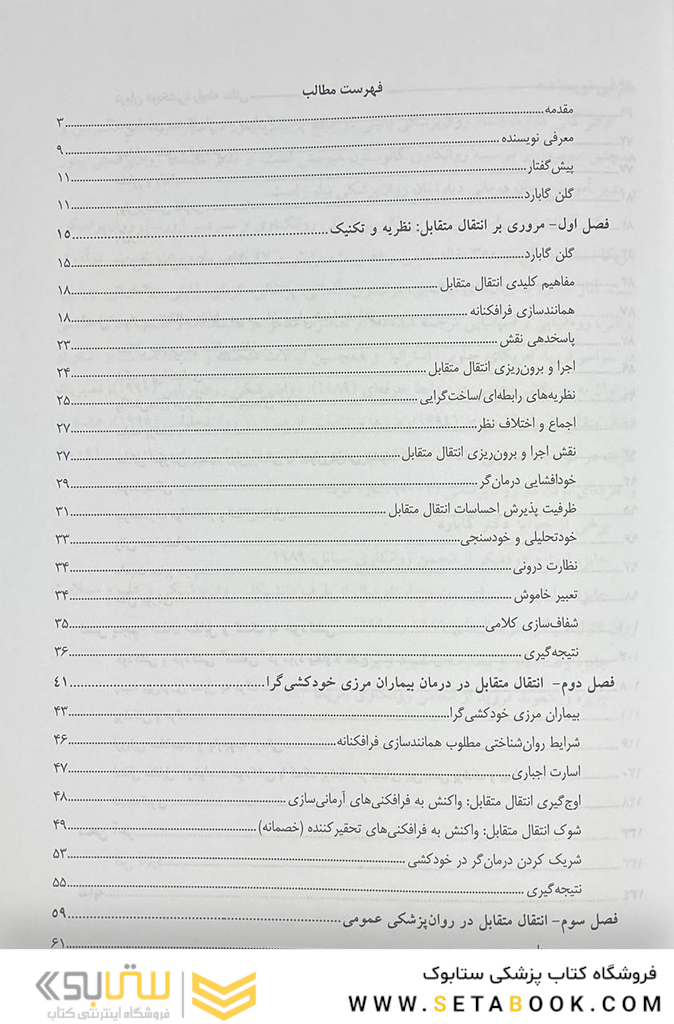 فهرست مطالب
مقدمه ۳
معرفی نویسنده ۹
پیش‌گفتار ۱۱
گلن گابارد ۱۱
فصل اول- مروری بر انتقال متقابل: نظریه و تکنیک ۱۵
گلن گابارد ۱۵
مفاهیم کلیدی انتقال متقابل ۱۸
همانندسازی فرافکنانه ۱۸
پاسخدهی نقش ۲۳
اجرا و برون‌ریزی انتقال متقابل ۲۴
نظریه‌های رابطه‌ای/ساخت‌گرایی ۲۵
اجماع و اختلاف نظر ۲۷
نقش اجرا و برون‌ریزی انتقال متقابل ۲۷
خودافشایی درمان‌گر ۲۹
ظرفیت پذیرش احساسات انتقال متقابل ۳۱
خودتحلیلی و خودسنجی ۳۳
نظارت درونی ۳۴
تعبیر خاموش ۳۴
شفاف‌سازی کلامی ۳۵
نتیجه‌گیری ۳۶
فصل دوم- انتقال متقابل در درمان بیماران مرزی خودکشی‌گرا ۴۱
بیماران مرزی خودکشی‌گرا ۴۳
شرایط روان‌شناختی مطلوب همانندسازی فرافکنانه ۴۶
اسارت اجباری ۴۷
اوج‌گیری انتقال متقابل: واکنش به فرافکنی‌های آرمانی‌سازی ۴۸
شوک انتقال متقابل: واکنش به فرافکنی‌های تحقیرکننده (خصمانه) ۴۹
شریک کردن درمان‌گر در خودکشی ۵۳
نتیجه‌گیری ۵۵
فصل سوم- انتقال متقابل در روان‌پزشکی عمومی ۵۹
۶۱
فروشگاه کتاب پزشکی ستابوک
WWW.SETABOOK.COM
ستابوک
فروشگاه اینترنتی کتاب